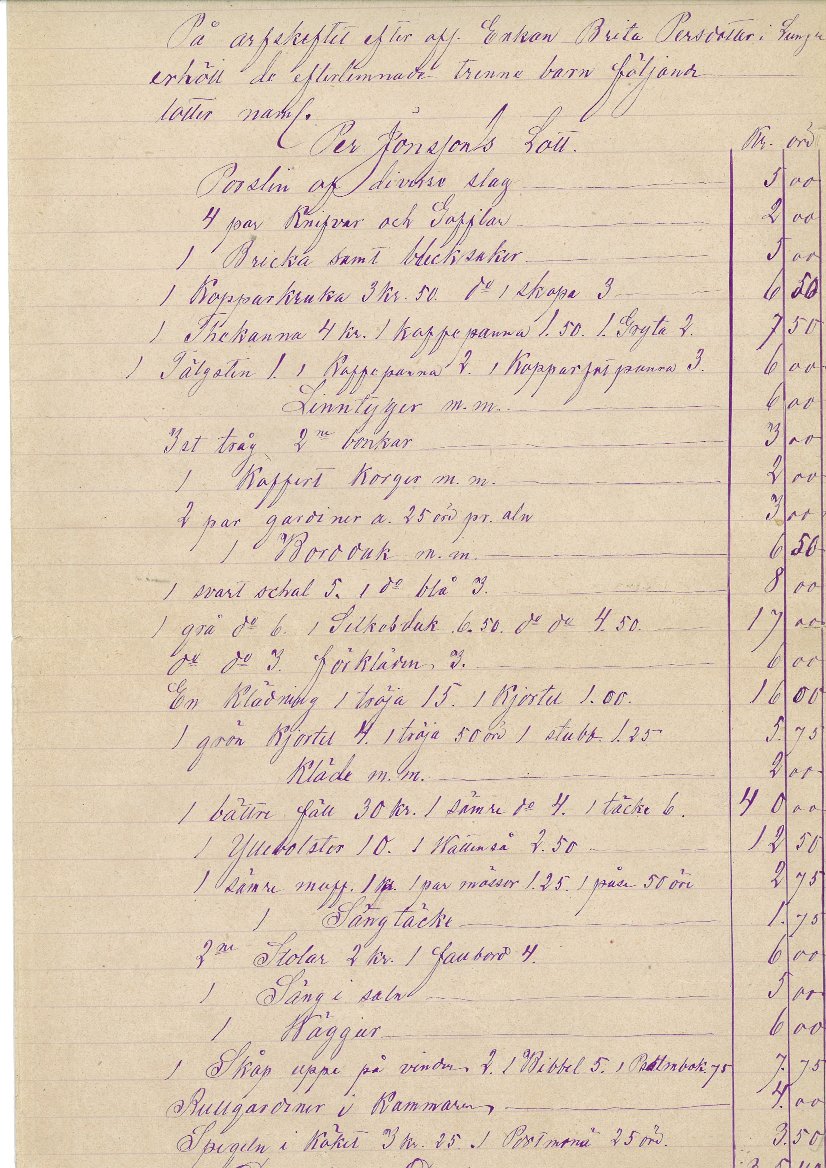 På arfskeftet efter afl. Enkan Brita Persdotter i
erhöll de efterlemnade trenne barn följande
lotter naml.
Per Jönsson's Lott. Kr. öre
Poslin af diverse slag 5 00
4 par Knifvar och Gafflar 2 00
1 Bricka samt blecksaker 5 00
1 Kopparkruka 3 kr. 50. do 1 skopa 3 6 50
1 Thekanna 4 kr. 1 kaffepanna 1.50. 1. Gryta 2. 7 50
1 Tälgsten 1. 1 Kaffepanna 2. 1 Koppar panna 3. 6 00
Linntyger m.m. 6 00
3 st tråg 2ne bonkar 3 00
1 Koffert Korger m.m. 2 00
2 par gardiner a. 25 öre pr. aln 3 00
1 Bordduk m.m. 6 50
1 svart schal 5. 1 do blå 3. 8 00
1 grå do 6. 1 Silkesduk 6.50. do do 4.50. 17 00
do do 3. förkläden 3. 6 00
En Klädning 1 tröja 15. 1 Kjortel 1.00. 16 00
1 grön Kjortel 4. 1 tröja 50 öre 1 stubb 1.25 5.75
Kläde m.m. 2 00
1 bättre fäll 30 kr. 1 sämre do 4. 1 täcke 6. 40 00
1 Yllebolster 10. 1 2.50 12 50
1 sämre muff. 1 kr. 1 par mössor 1.25. 1 påse 50 öre 2 75
1 Sängtäcke 1.75
2ne Stolar 2 kr. 1 fallbord 4. 6 00
1 Säng i saln 5 00
1 Wäggur 6 00
1 Skåp uppe på vinden 2. 1 Bibbel 5. 1 Psalmbok 75 7.75
Rullgardiner i Kammaren 4.00
Spegeln i Köket 3 kr. 25. 1 Portmonä 25 öre. 3.50